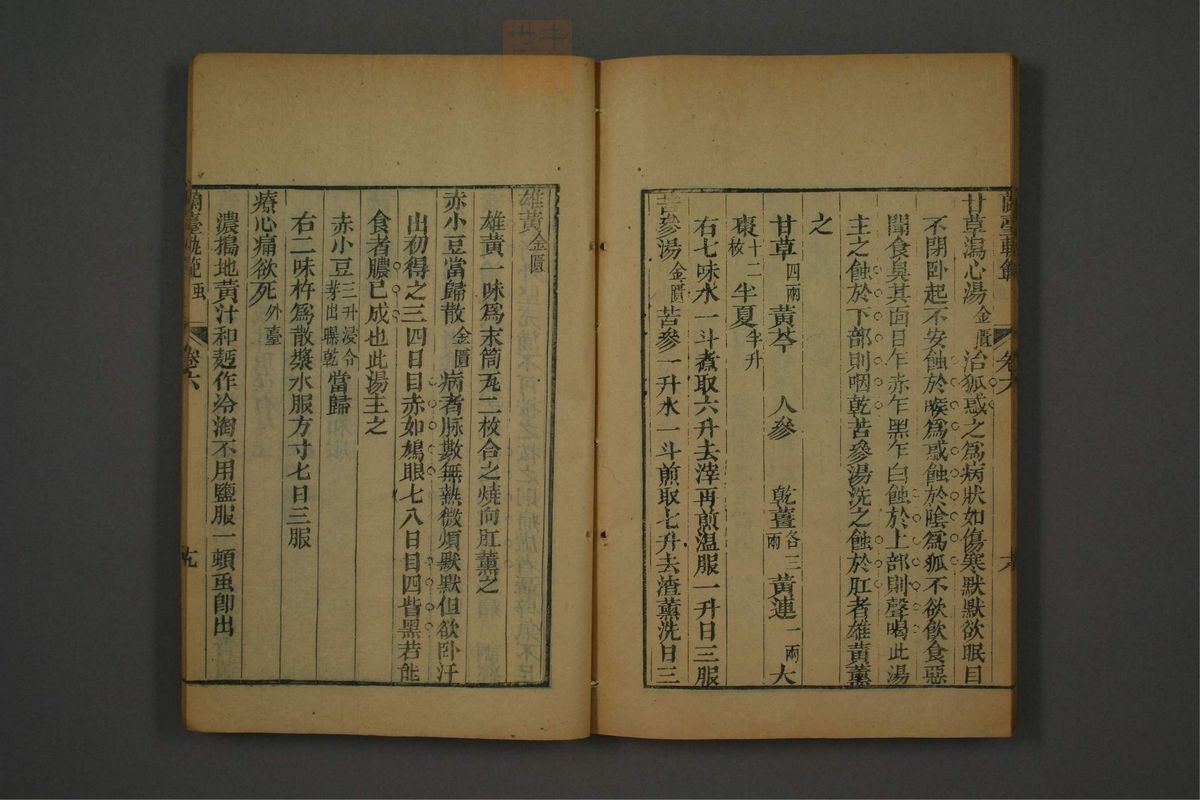 甘草瀉心湯金匱治狐惑之爲病狀如傷寒默默欲眠目
不閉卧起不安蝕於喉爲惑蝕於陰爲狐不欲飲食惡
聞食臭其面目乍赤乍黑乍白蝕於上部則聲喝此湯
主之蝕於下部則咽乾苦參湯洗之蝕於肛者雄黄薰
之
甘草四兩黄芩 人參 乾薑各三兩黄連一兩大
棗十二枚半夏半升
右七味水一斗煮取六升去滓再煎温服一升日三服
苦參湯金匱苦參一升水一斗煎取七升去渣薰洗日三
雄黄金匱
雄黄一味爲末筒瓦二枚合之燒向肛薰之
赤小豆當歸散金匱病者脉數無熱微煩默默但欲卧汗
出初得之三四日目赤如鳩眼七八日目四眥黑若能
食者膿已成也此湯主之
赤小豆三升浸令芽出曝乾當歸
右二味杵爲散漿水服方寸匕日三服
療心痛欲死外臺
濃搗地黄汁和麪作冷淘不用鹽服一頓虫即出
蘭臺軌範 虫 卷六 十九